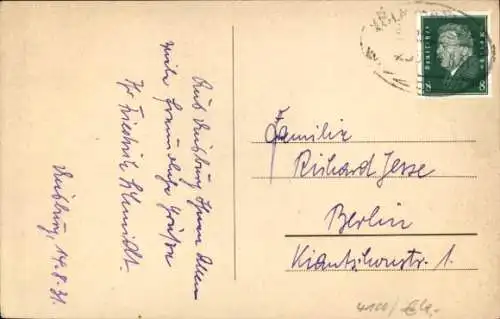 Aus Duisburg Ihnen Allen
viele freundliche Grüße
Ihr Friedrich Schmidt.
Duisburg, 14.8.31.
Familie
Richard Jesse
Berlin
Kiautschoustr. 1.
DEUTSCHES
REICH
8 8
4100/